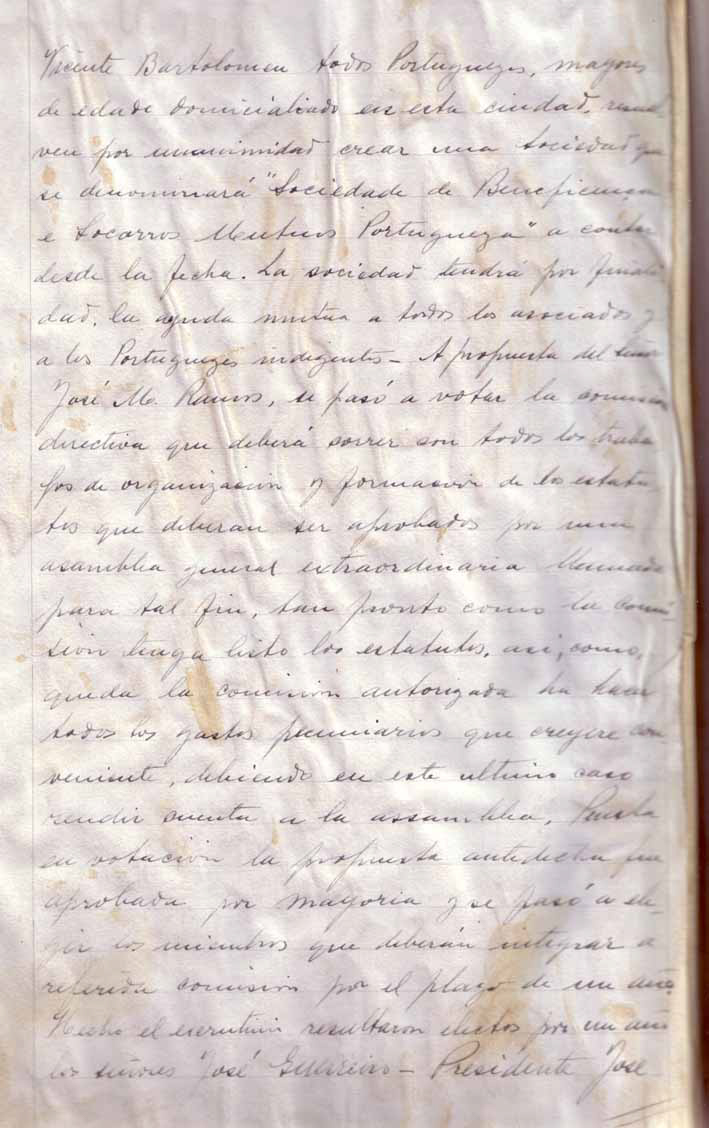 Vicente Bartolomeu todos Portuguezes, mayores
de edade domicialiado en esta ciudad, resuel-
ven por unanimidad crear una Sociedad que
se denominará "Sociedade de Beneficença
e Socorros Mutuos Portugueza" a contar
desde la fecha. La sociedad tendrá por finali-
dad, la ayuda mutua a todos los asociados y
a los Portuguezes indigentes - A propuesta del señor
José M. Ramos, se pasó a votar la comision
directiva que deberá correr con todos los traba-
jos de organización y formación de los estatu-
tos que deberan ser aprobados por una
asamblea general extraordinaria llamada
para tal fin, tan pronto como la comi-
sión tenga listo los estatutos, asi, como,
queda la comisión autorizada ha hacer
todos los gastos pecuniarios que creyere con-
veniente, debiendo en este ultimo caso
rendir cuenta a la assamblea. Puesta
en votación la propuesta antedicha fue
aprobada por mayoria y se pasó a ele-
gir los miembros que deberán integrar a
referida comisión por el plazo de un año.
Hecho el escrutinio resultaron electos por un año
los señores José Guerreiro - Presidente José